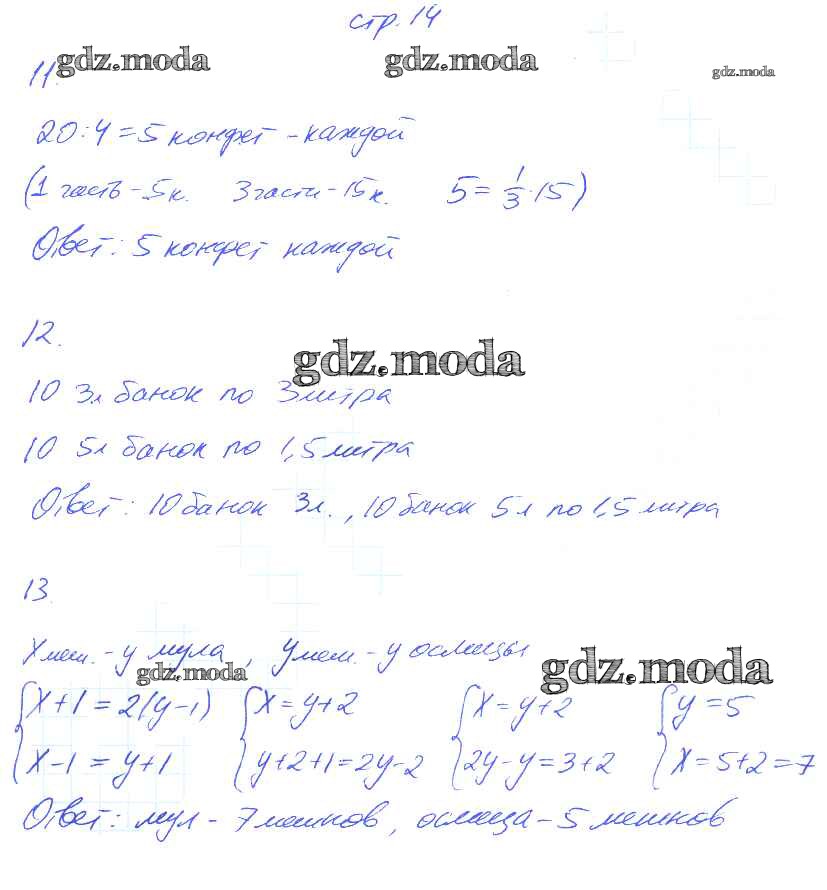 стр. 14
gdz.moda gdz.moda gdz.moda
11.
20 : 4 = 5 конфет - каждой
(1 часть - 5 к. 3 части - 15 к. 5 = 1/3 · 15)
Ответ: 5 конфет каждой
12.
gdz.moda
10 3л банок по 3 литра
10 5л банок по 1,5 литра
Ответ: 10 банок 3 л., 10 банок 5 л по 1,5 литра
13.
X меш. - у мула, y меш. - у ослицы
gdz.moda gdz.moda
{x + 1 = 2(y - 1) {x = y + 2 {x = y + 2 {y = 5
{x - 1 = y + 1 {y + 2 + 1 = 2y - 2 {2y - y = 3 + 2 {x = 5 + 2 = 7
Ответ: мул - 7 мешков, ослица - 5 мешков